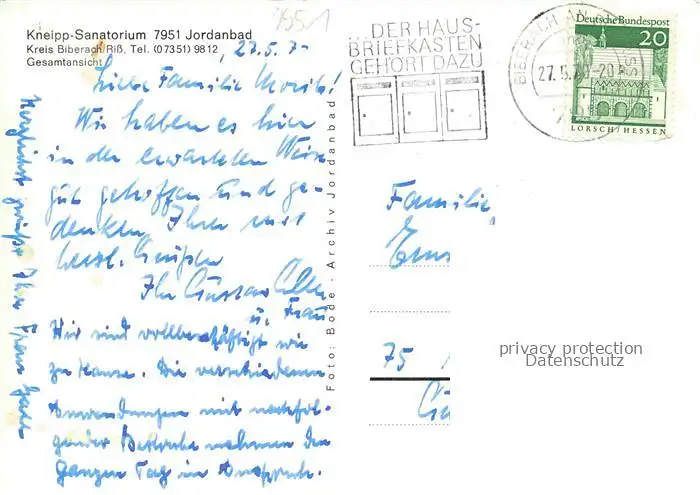 Kneipp-Sanatorium 7951 Jordanbad
Kreis Biberach/Riß, Tel. (07351) 9812
Gesamtansicht
7951
27.5.70
Liebe Familie
Wir haben es hier
in der erwarteten Weise
gut getroffen und ge-
denken Ihrer mit
herzl. Grüßen
Ihr Gustav
u. Frau
Wir sind vollbeschäftigt wie
zu Hause. Die verschiedenen
Anwendungen mit nachfol-
gender Bettruhe nehmen den
ganzen Tag in Anspruch.
Herzlichst grüßt Ihre Frau
Foto: Bode - Archiv Jordanbad
DER HAUS-
BRIEFKASTEN
GEHÖRT DAZU
BIBERACH AN
27.5.70-20
Deutsche Bundespost
20
LORSCH/HESSEN
Familie
75
privacy protection
Datenschutz